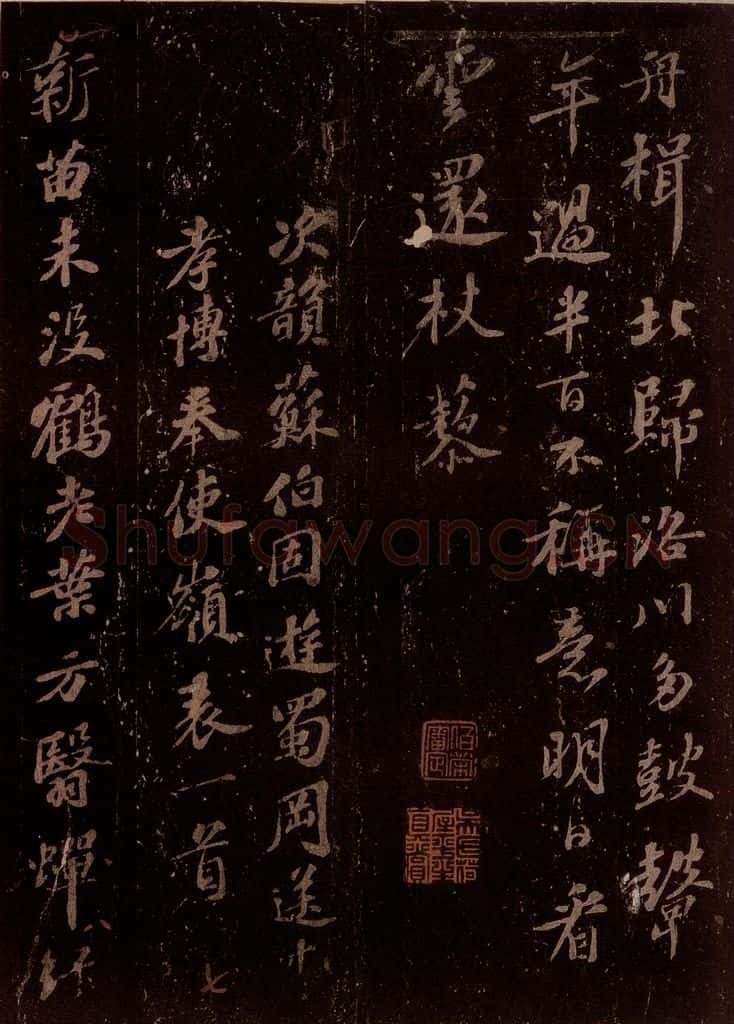 舟楫北歸洛川多鼓鼙
年過半百不稱意明日看
雲還杖藜
次韻蘇伯固遊蜀岡送
孝博奉使嶺表一首
七
新苗未沒鶴老葉方翳蟬
Shufawang.CN